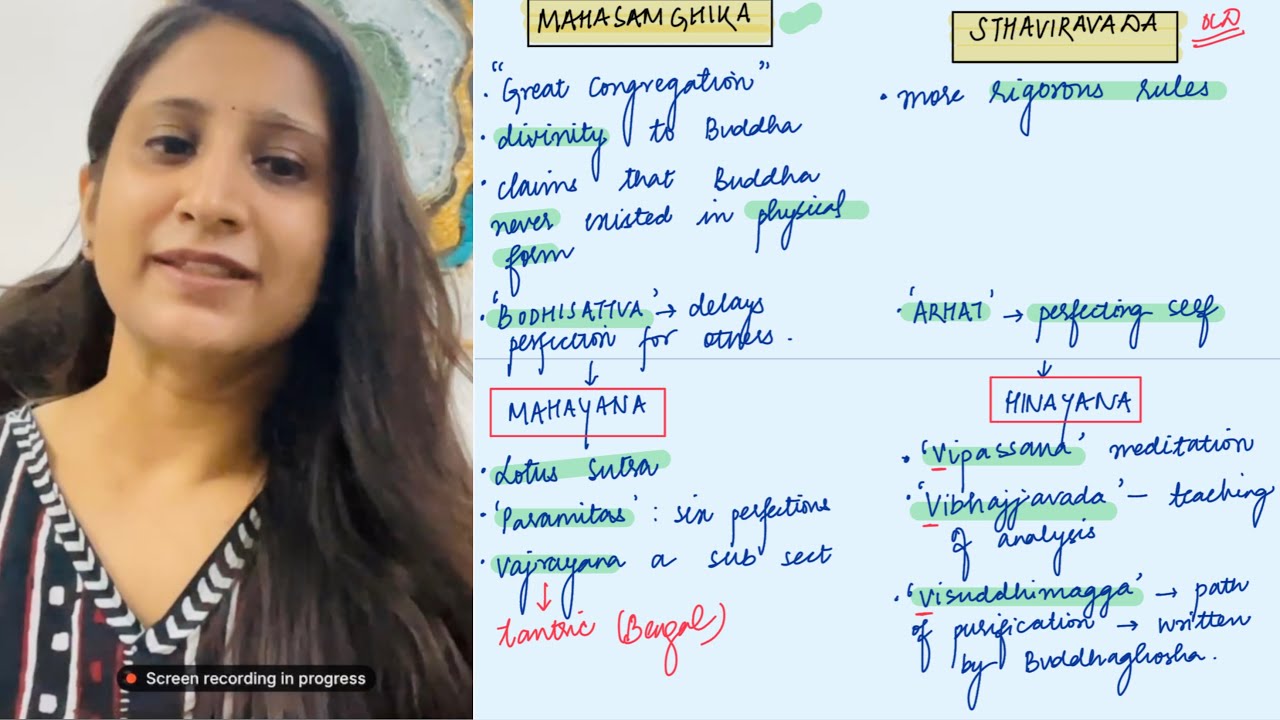 MAHASAMGHIKA
"Great Congregation"
· divinity to Buddha
· claims that Buddha
never existed in physical
form
· 'BODHISATTVA' → delays
perfection for others.
↓
MAHAYANA
· Lotus Sutra
· 'Paramitas' : six perfections
· Vajrayana a sub sect
↓
tantric (Bengal)
STHAVIRAVADA OLD
· more rigorous rules
· 'ARHAT' → perfecting self
↓
HINAYANA
· 'Vipassana' meditation
· 'Vibhajjavada' – teaching
of analysis
· 'Visuddhimagga' → path
of purification → written
by Buddhaghosha.
Screen recording in progress